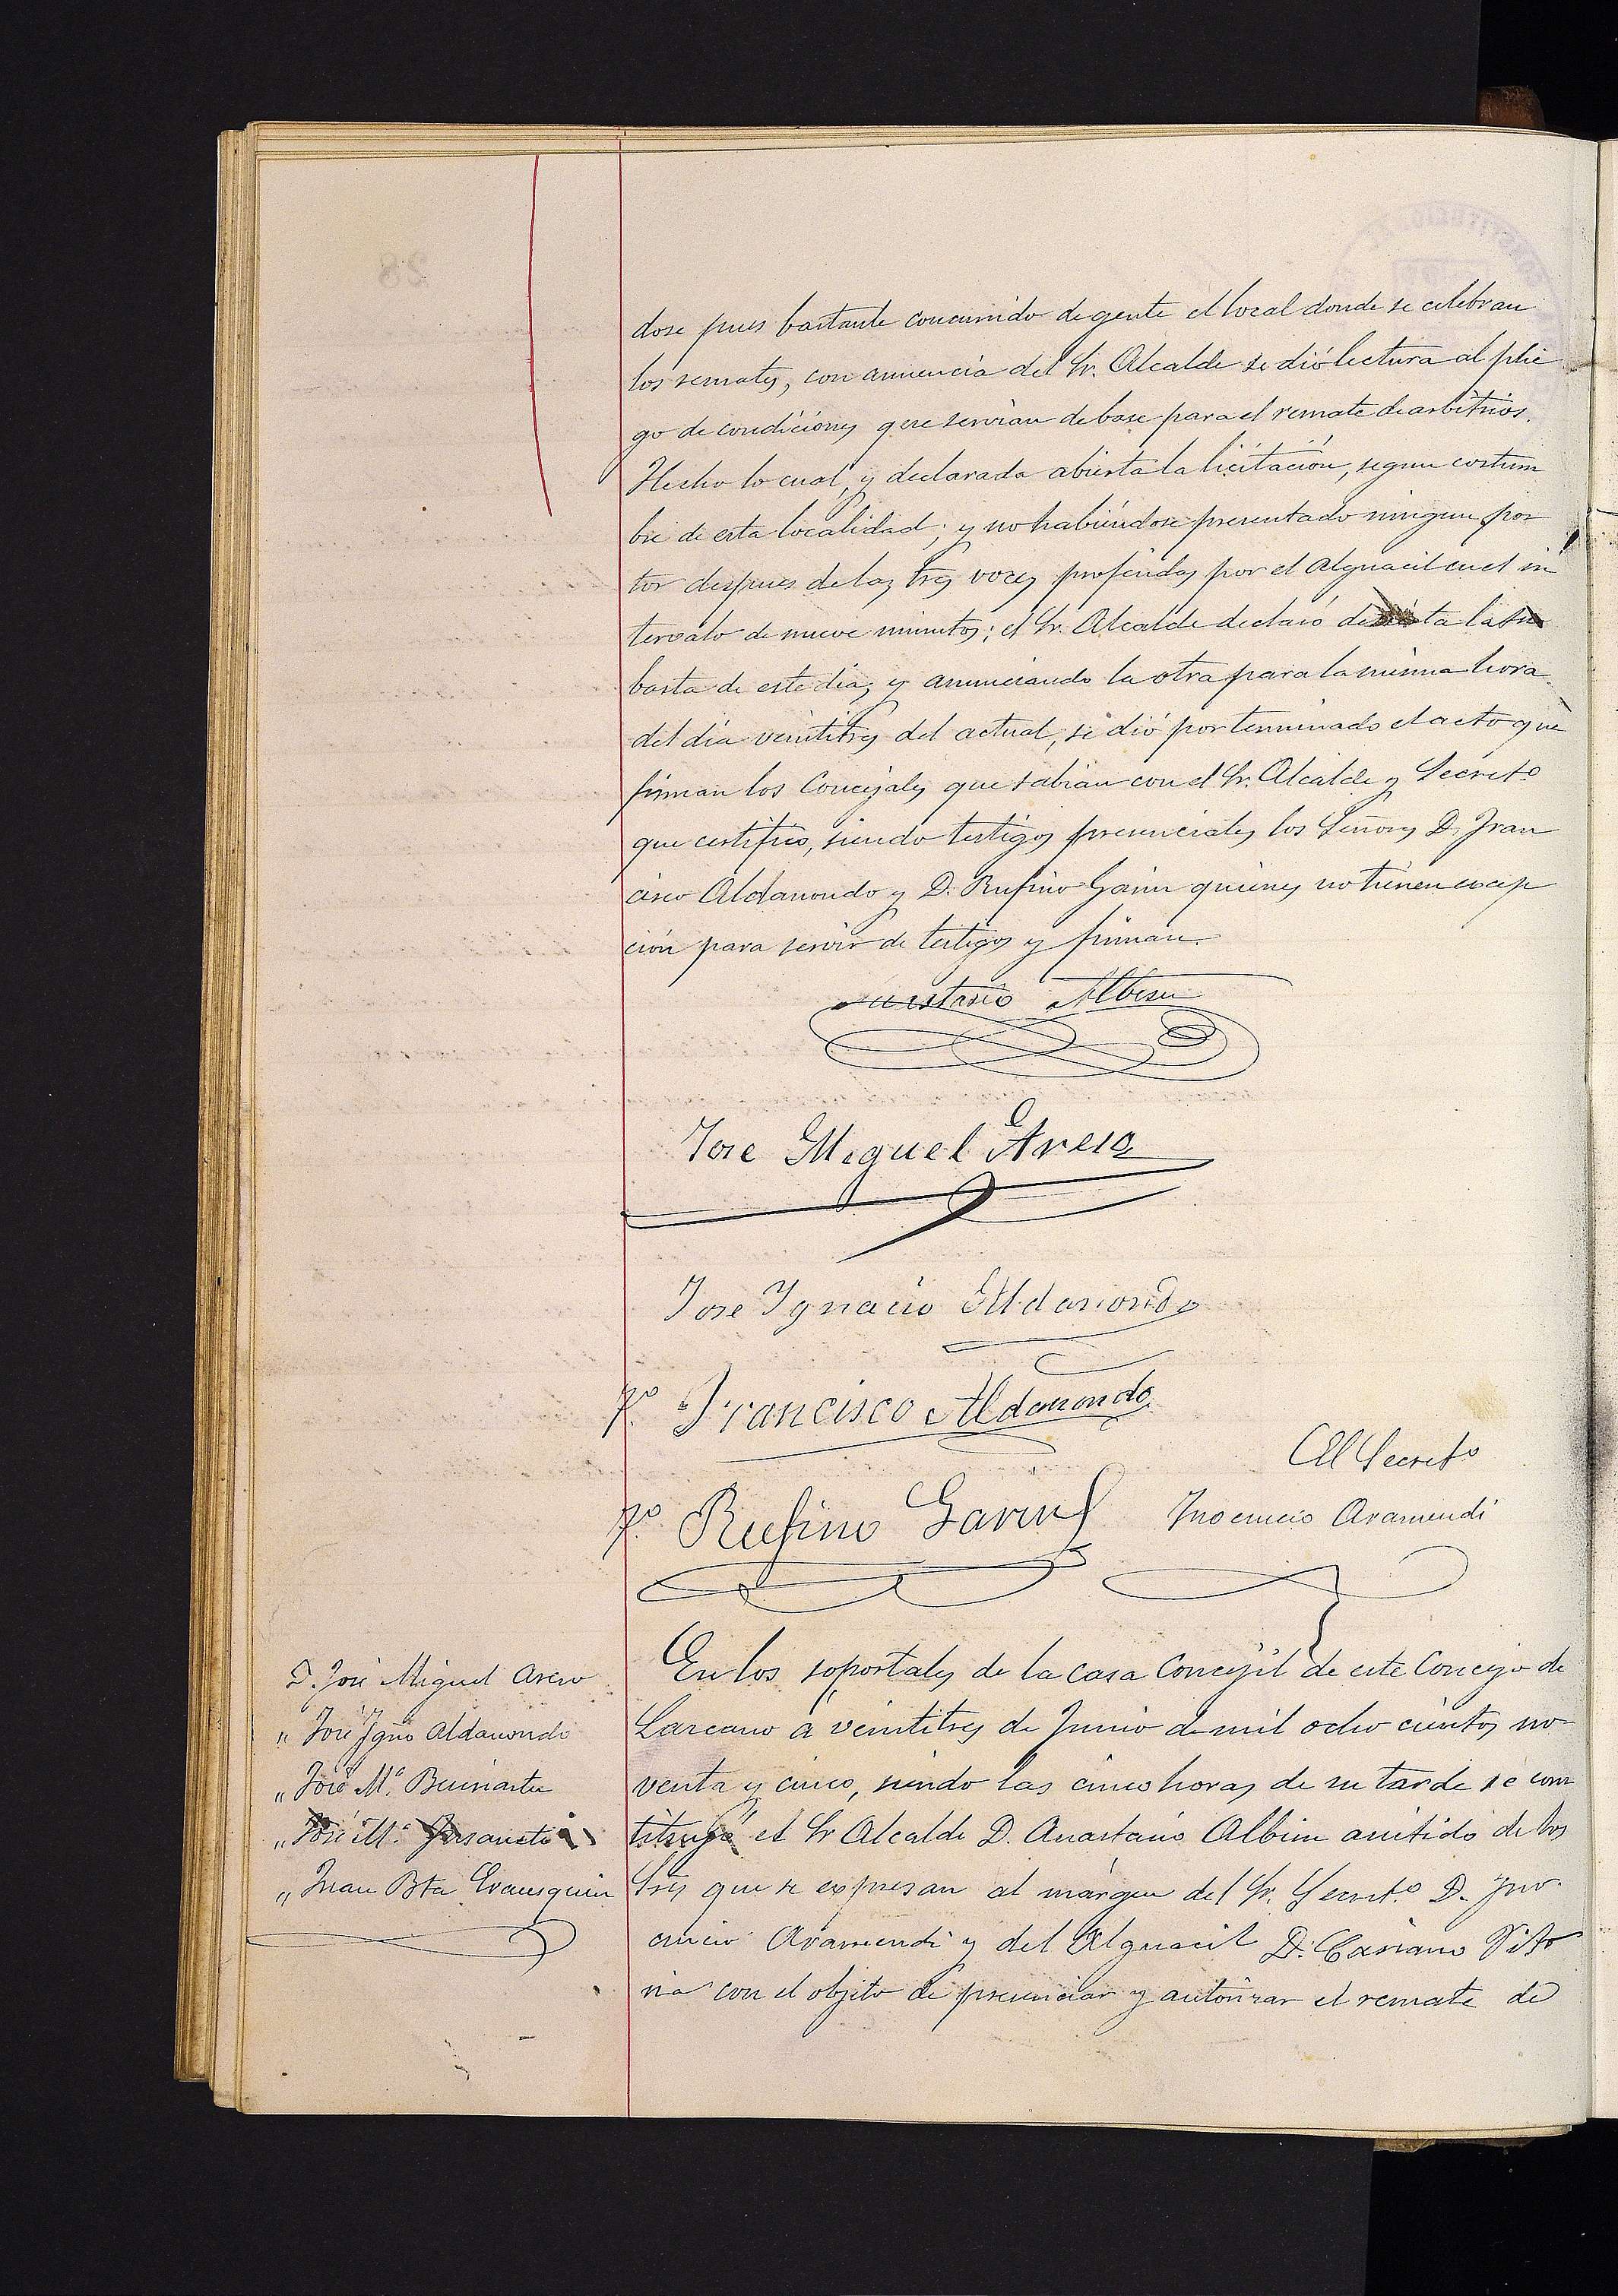 dose pues bastante concurrido de gente el local donde se celebran
los remates, con anuencia del Sr. Alcalde se dió lectura al plie
go de condiciones que servian de base para el remate de arbitrios.
Hecho lo cual, y declarada abierta la licitación, segun costum
bre de esta localidad; y no habiéndose presentado ningun pos
tor despues de las tres voces proferidas por el Alguacil en el in
tervalo de nueve minutos; el Sr. Alcalde declaró desierta la su
basta de este dia, y anunciando la otra para la misma hora
del dia veintitres del actual, se dió por terminado el acto que
firman los Concejales que sabian con el Sr. Alcalde y Secret.o
que certifico, siendo testigos presenciales los Señores D. Fran
cisco Aldanondo y D. Rufino Garin quienes no tienen excep
ción para servir de testigos y firman.
Anastasio Albisu
Jose Miguel
Jose Ygnacio Aldanondo
T.o Francisco Aldanondo
El Secret.o
T.o Rufino Garin
Inocencio Aramendi
D. José Miguel
" José Ign.o Aldanondo
" José M.a
" José M.a
" Juan Bta Erausquin
En los soportales de la casa Concejil de este Concejo de
Lazcano á veintitres de Junio de mil ocho cientos no-
venta y cinco, siendo las cinco horas de su tarde se cons
tituyó el Sr Alcalde D. Anastasio Albisu asistido de los
Sres que se expresan al márgen del Sr. Secret.o D. Ino-
cencio Aramendi y del Alguacil D. Casiano Vito
ria con el objeto de presenciar y autorizar el remate de